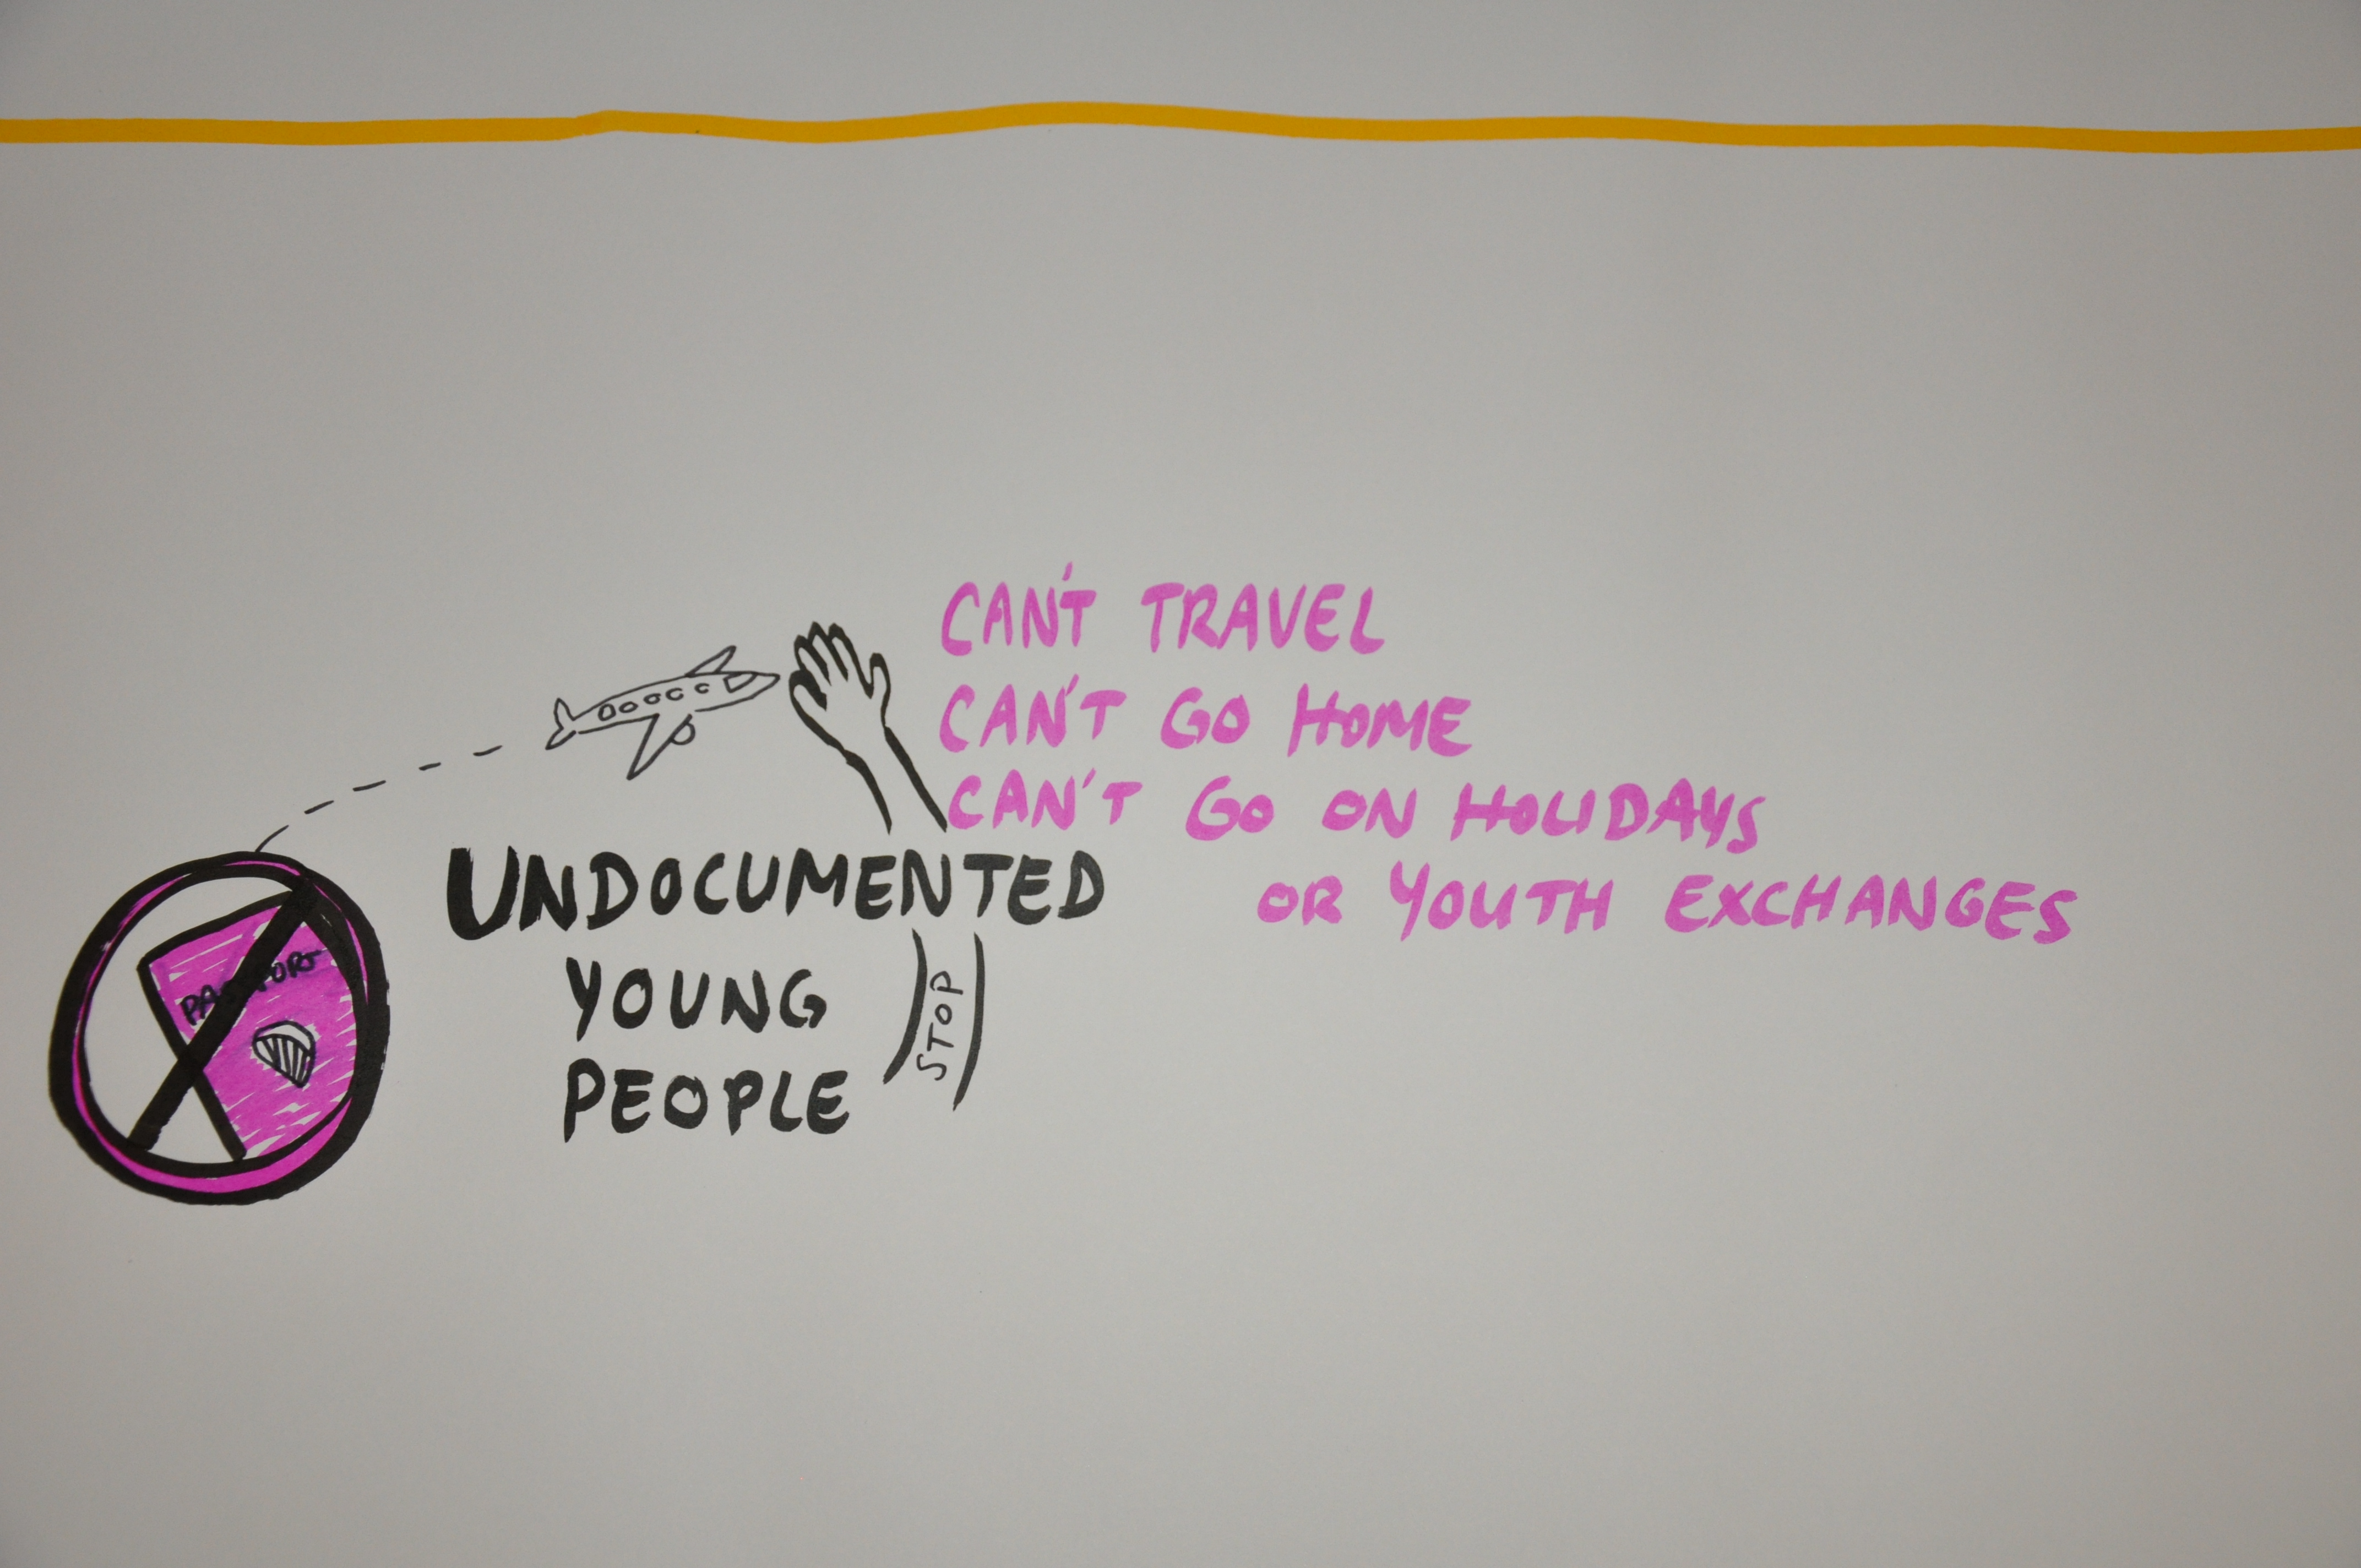 CAN'T TRAVEL
CAN'T GO HOME
CAN'T GO ON HOLIDAYS
OR YOUTH EXCHANGES
UNDOCUMENTED
YOUNG
PEOPLE
STOP
PASSPORT